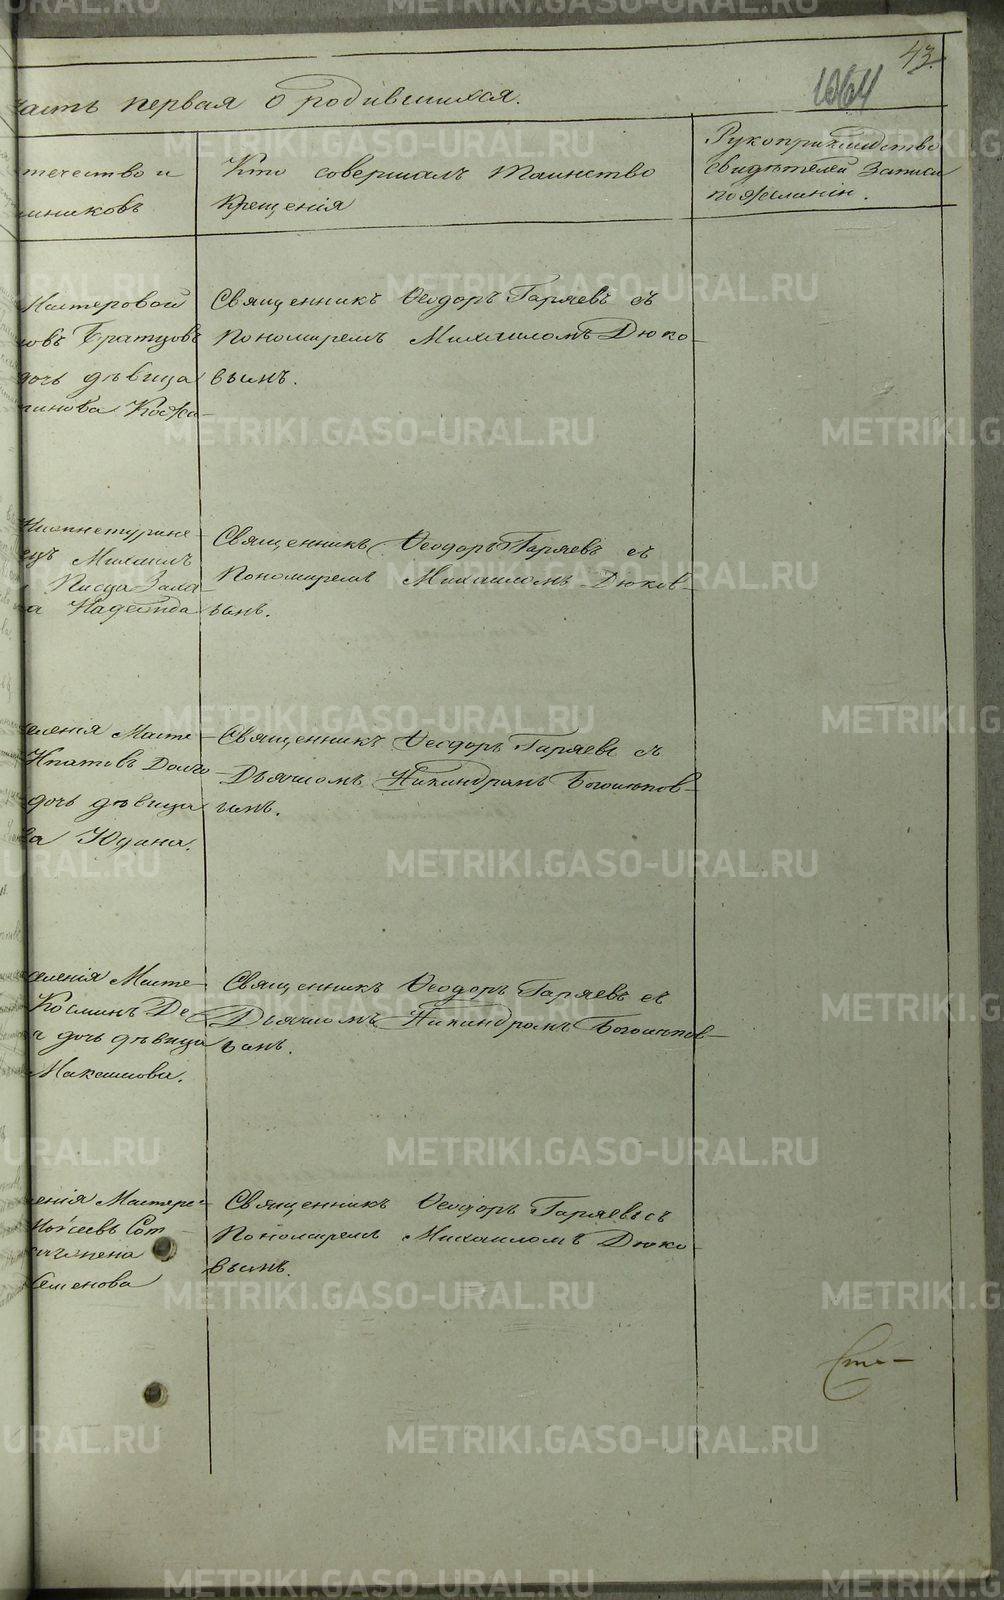 43.
1064
часть первая о родившихся.
течество и
мниковъ
Кто совершалъ таинство
Крещенія
Рукоприкладство
свидѣтелей записи
по желанію.
Мастеровой
новъ Братцовъ
дочь дѣвица
Священникъ Ѳеодоръ Гаряевъ съ
Пономаремъ Михаиломъ Дюко-
вымъ.
Нижнетурин-
ецъ Михаилъ
Писца
а Надежда
Священникъ Ѳеодоръ Гаряевъ съ
Пономаремъ Михаиломъ Дюков-
ымъ.
еленія Масте-
Ипатовъ Долго
дочь дѣвица
ва Юдина.
Священникъ Ѳеодоръ Гаряевъ съ
Дьячкомъ Никандромъ Боголѣпов-
ымъ.
селенія Масте-
Косминъ Де
а дочь дѣвица
Максимова.
Священникъ Ѳеодоръ Гаряевъ съ
Дьячкомъ Никандромъ Боголѣпов-
ымъ.
енія Мастеро-
Моѵсеевъ Сот
жена
Семенова
Священникъ Ѳеодоръ Гаряевъ съ
Пономаремъ Михаиломъ Дюко-
вымъ.
METRIKI.GASO-URAL.RU